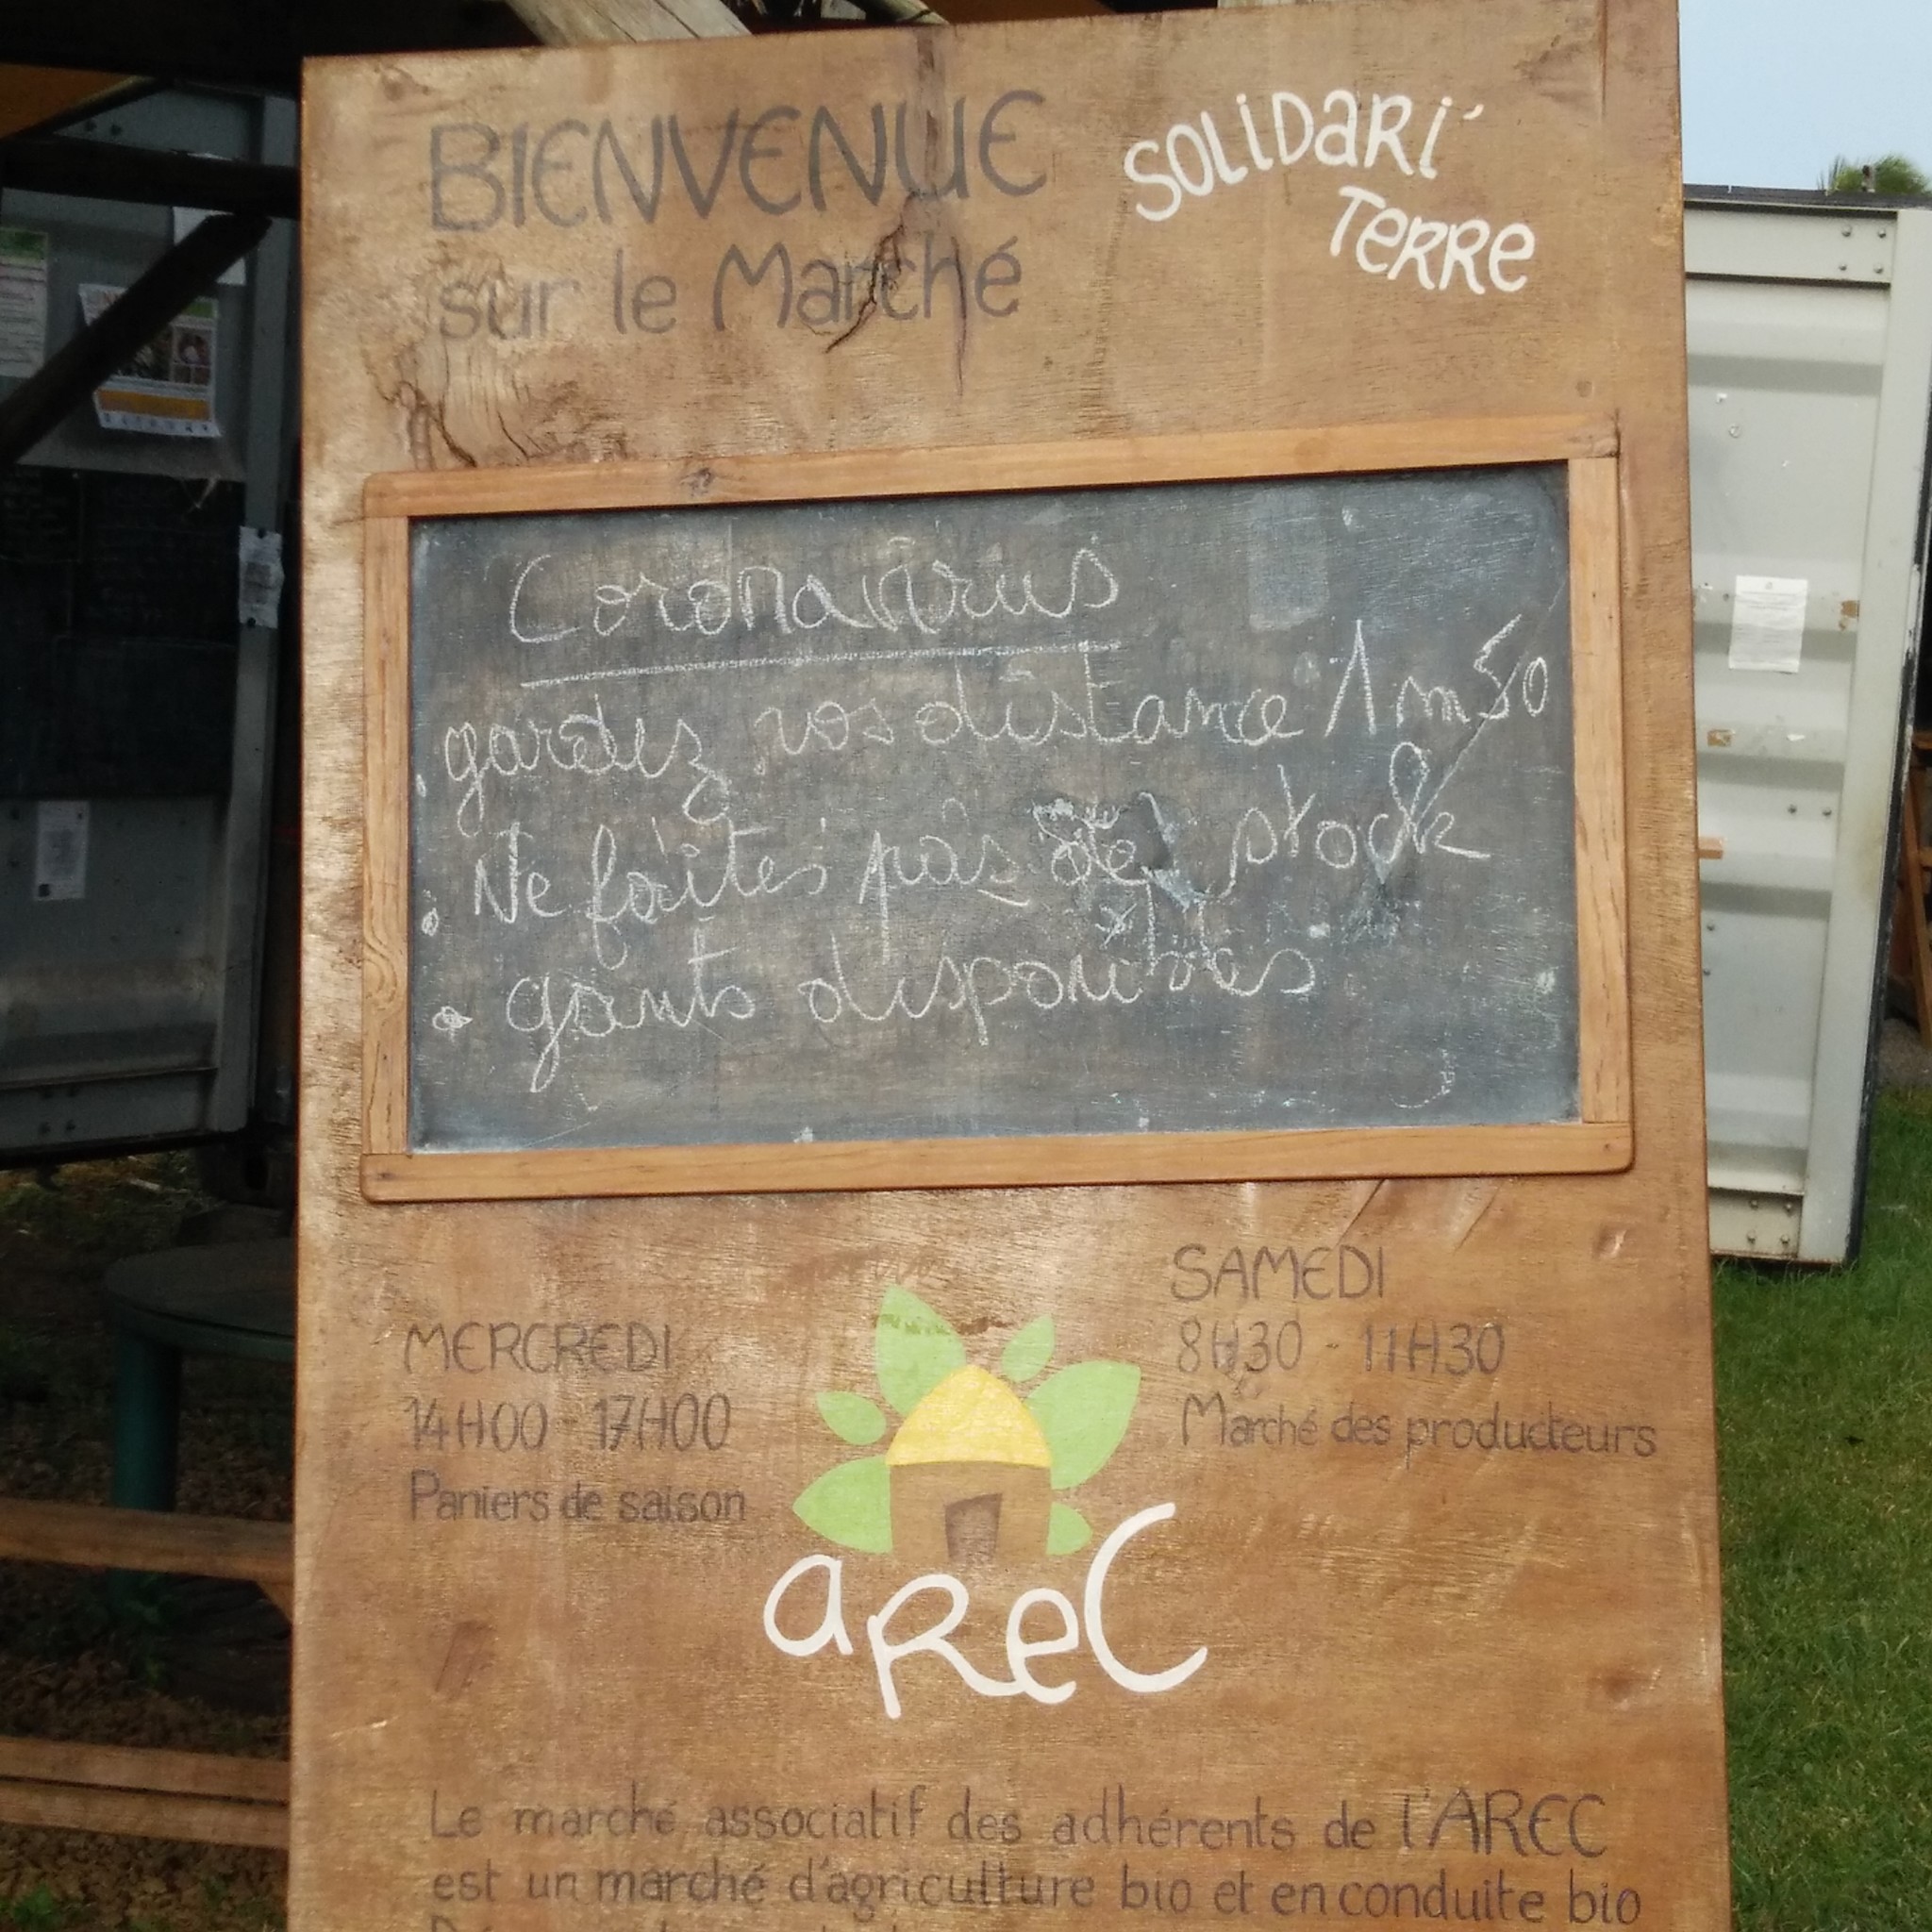 BIENVENUE
sur le Marché
SOLiDaRi'
TeRRe
Coronavirus
gardez vos distance 1m50
Ne faites pas de stock
gants disponibles
MERCREDI
14H00 - 17H00
Paniers de saison
SAMEDI
8H30 - 11H30
Marché des producteurs
aReC
Le marché associatif des adhérents de l'AREC
est un marché d'agriculture bio et en conduite bio